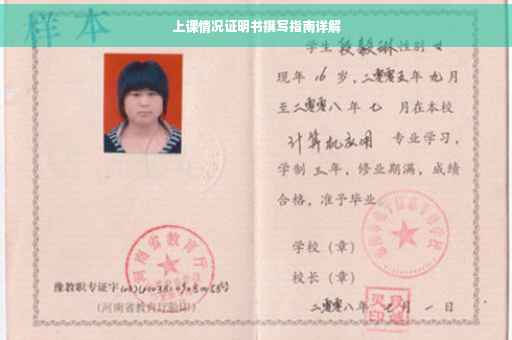 上课情况证明书撰写指南详解
样本
学生段毅琳性别女
现年16岁,二零零五年九月
至二零零八年七月在本校
计算机应用专业学习,
学制三年,修业期满,成绩
合格,准予毕业
学校(章)
校长(章)
二零零八年七月一日
河南省教育厅
豫教职专证字
(河南省教育厅验印)